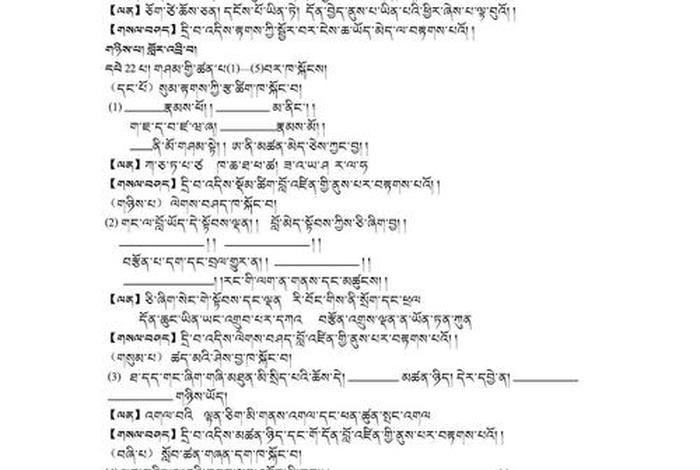 【ལན】ཅོག་ཙེ་ཆོས་ཅན། དངོས་པོ་ཡིན་ཏེ། དོན་བྱེད་ནུས་པ་ཡིན་པའི་ཕྱིར་ཞེས་པ་ལྟ་བུའོ། །
【གསལ་བཤད】དྲི་བ་འདིས་རྟགས་ཀྱི་སྦྱོར་བར་ངེས་ཆ་ཡོད་མེད་ལ་བརྟགས་པའོ། །
གཉིས་པ། གློར་འབྲི་བ།
དཔེ 22 པ། གཤམ་གྱི་ཚན་པ(1)—(5)བར་ཁ་སྐོངས།
（དང་པོ）སུམ་རྟགས་ཀྱི་རྩ་ཚིག་ཁ་སྐོང་བ།
(1) ______རྣམས་ཕོ། །________མ་ནིང་། །
ག་ཇ་ད་བ་ཛ་ཝ་ཞ། ________རྣམས་མོ། །
___ནི་མོ་གཤམ་སྟེ། །ཨ་ནི་མཚན་མེད་ཅེས་ཀྱང་བྱ། །
【ལན】ཀ་ཅ་ཏ་པ་ཙ ཁ་ཆ་ཐ་ཕ་ཚ། ཟ་འ་ཡ་ཤ ར་ལ་ཧ
【གསལ་བཤད】དྲི་བ་འདིས་སྡོམ་ཚིག་བློ་འཛིན་གྱི་ནུས་པར་བརྟགས་པའོ། །
（གཉིས་པ）ལེགས་བཤད་ཁ་སྐོང་བ།
(2) གང་ལ་བློ་ཡོད་དེ་སྟོབས་ལྡན། །བློ་མེད་སྟོབས་ཀྱིས་ཅི་ཞིག་བྱ། །
____________། །____________། །
བརྩོན་པ་དག་དང་བྲལ་གྱུར་ན། །____________། །
____________། །རང་གི་ལག་ན་གནས་དང་མཚུངས། །
【ལན】ཅི་ཞིག་སེང་གེ་སྟོབས་དང་ལྡན རི་བོང་གིས་ནི་སྲོག་དང་ཕྲལ
དོན་ཆུང་ཡིན་ཡང་འགྲུབ་པར་དཀའ བརྩོན་འགྲུས་ལྡན་ན་ཡོན་ཏན་ཀུན
【གསལ་བཤད】དྲི་བ་འདིས་ལེགས་བཤད་བློ་འཛིན་གྱི་ནུས་པར་བརྟགས་པའོ། །
（གསུམ་པ）ཚད་མའི་ཤེས་བྱ་ཁ་སྐོང་བ།
(3) ཐ་དད་གང་ཞིག་གཞི་མཐུན་མི་སྲིད་པའི་ཆོས་དེ། _______མཚན་ཉིད། དེར་དབྱེ་ན། _________
_________གཉིས་ཡོད།
【ལན】འགལ་བའི ལྷན་ཅིག་མི་གནས་འགལ་དང་ཕན་ཚུན་སྤང་འགལ
【གསལ་བཤད】དྲི་བ་འདིས་མཚན་ཉིད་དང་གོ་དོན་བློ་འཛིན་གྱི་ནུས་པར་བརྟགས་པའོ། །
（བཞི་པ）སློབ་ཚན་གཞན་དག་ཁ་སྐོང་བ།